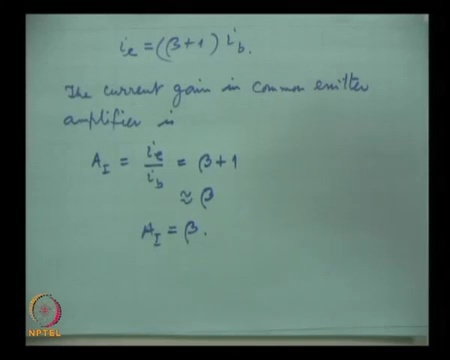 i_e = (β+1) i_b.
The current gain in common emitter
amplifier is
A_I = i_e/i_b = β+1
≈ β
A_I = β.
NPTEL